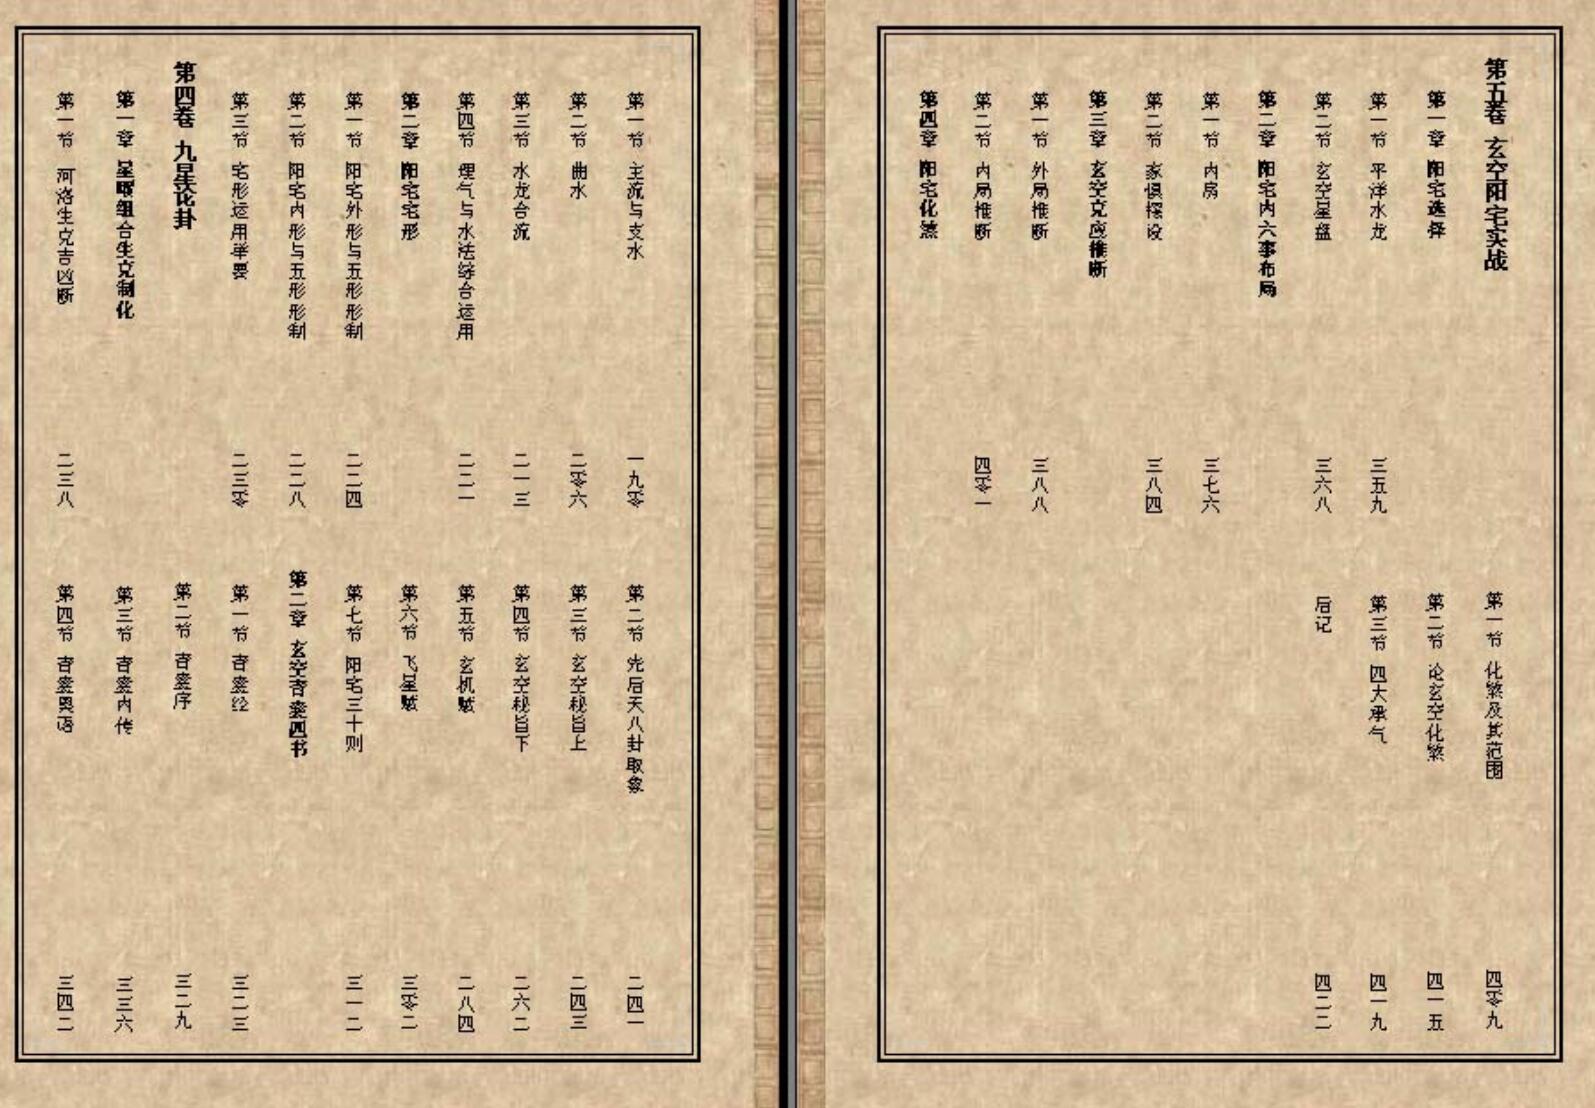 第一节 主流与支水 一九零
第二节 曲水 二零六
第三节 水龙合流 二一三
第四节 理气与水法综合运用 二二一
第二章 阳宅宅形
第一节 阳宅外形与五形形制 二二四
第二节 阳宅内形与五形形制 二二八
第三节 宅形运用举要 二三零
第四卷 九星法论卦
第一章 星曜组合生克制化
第一节 河洛生克吉凶断 二三八
第二节 先后天八卦取象 二四一
第三节 玄空秘旨上 二四三
第四节 玄空秘旨下 二六二
第五节 玄机赋 二八四
第六节 飞星赋 三零二
第七节 阳宅三十则 三一二
第二章 玄空青囊四书
第一节 青囊经 三二三
第二节 青囊序 三二九
第三节 青囊内传 三三六
第四节 青囊奥语 三四二
第五卷 玄空阳宅实战
第一章 阳宅选择
第一节 平洋水龙 三五九
第二节 玄空星盘 三六八
第二章 阳宅内六事布局
第一节 内房 三七六
第二节 家俱摆设 三八四
第三章 玄空克应推断
第一节 外局推断 三八八
第二节 内局推断 四零一
第四章 阳宅化煞
第一节 化煞及其范围 四零九
第二节 论玄空化煞 四一五
第三节 四大承气 四一九
后记 四二二